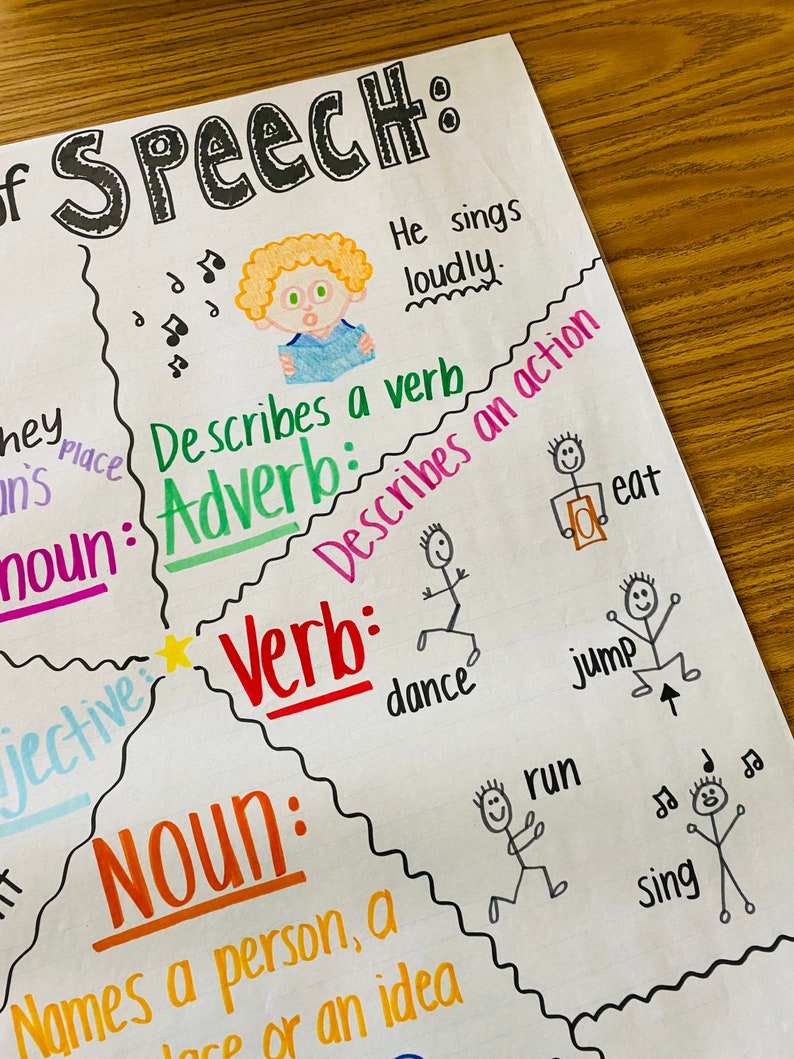 of Speech:
He sings
loudly.
Describes a verb
Adverb:
they
place
noun:
Describes an action
Verb:
eat
dance
jump
run
sing
Adjective:
Noun:
Names a person, a
place or an idea